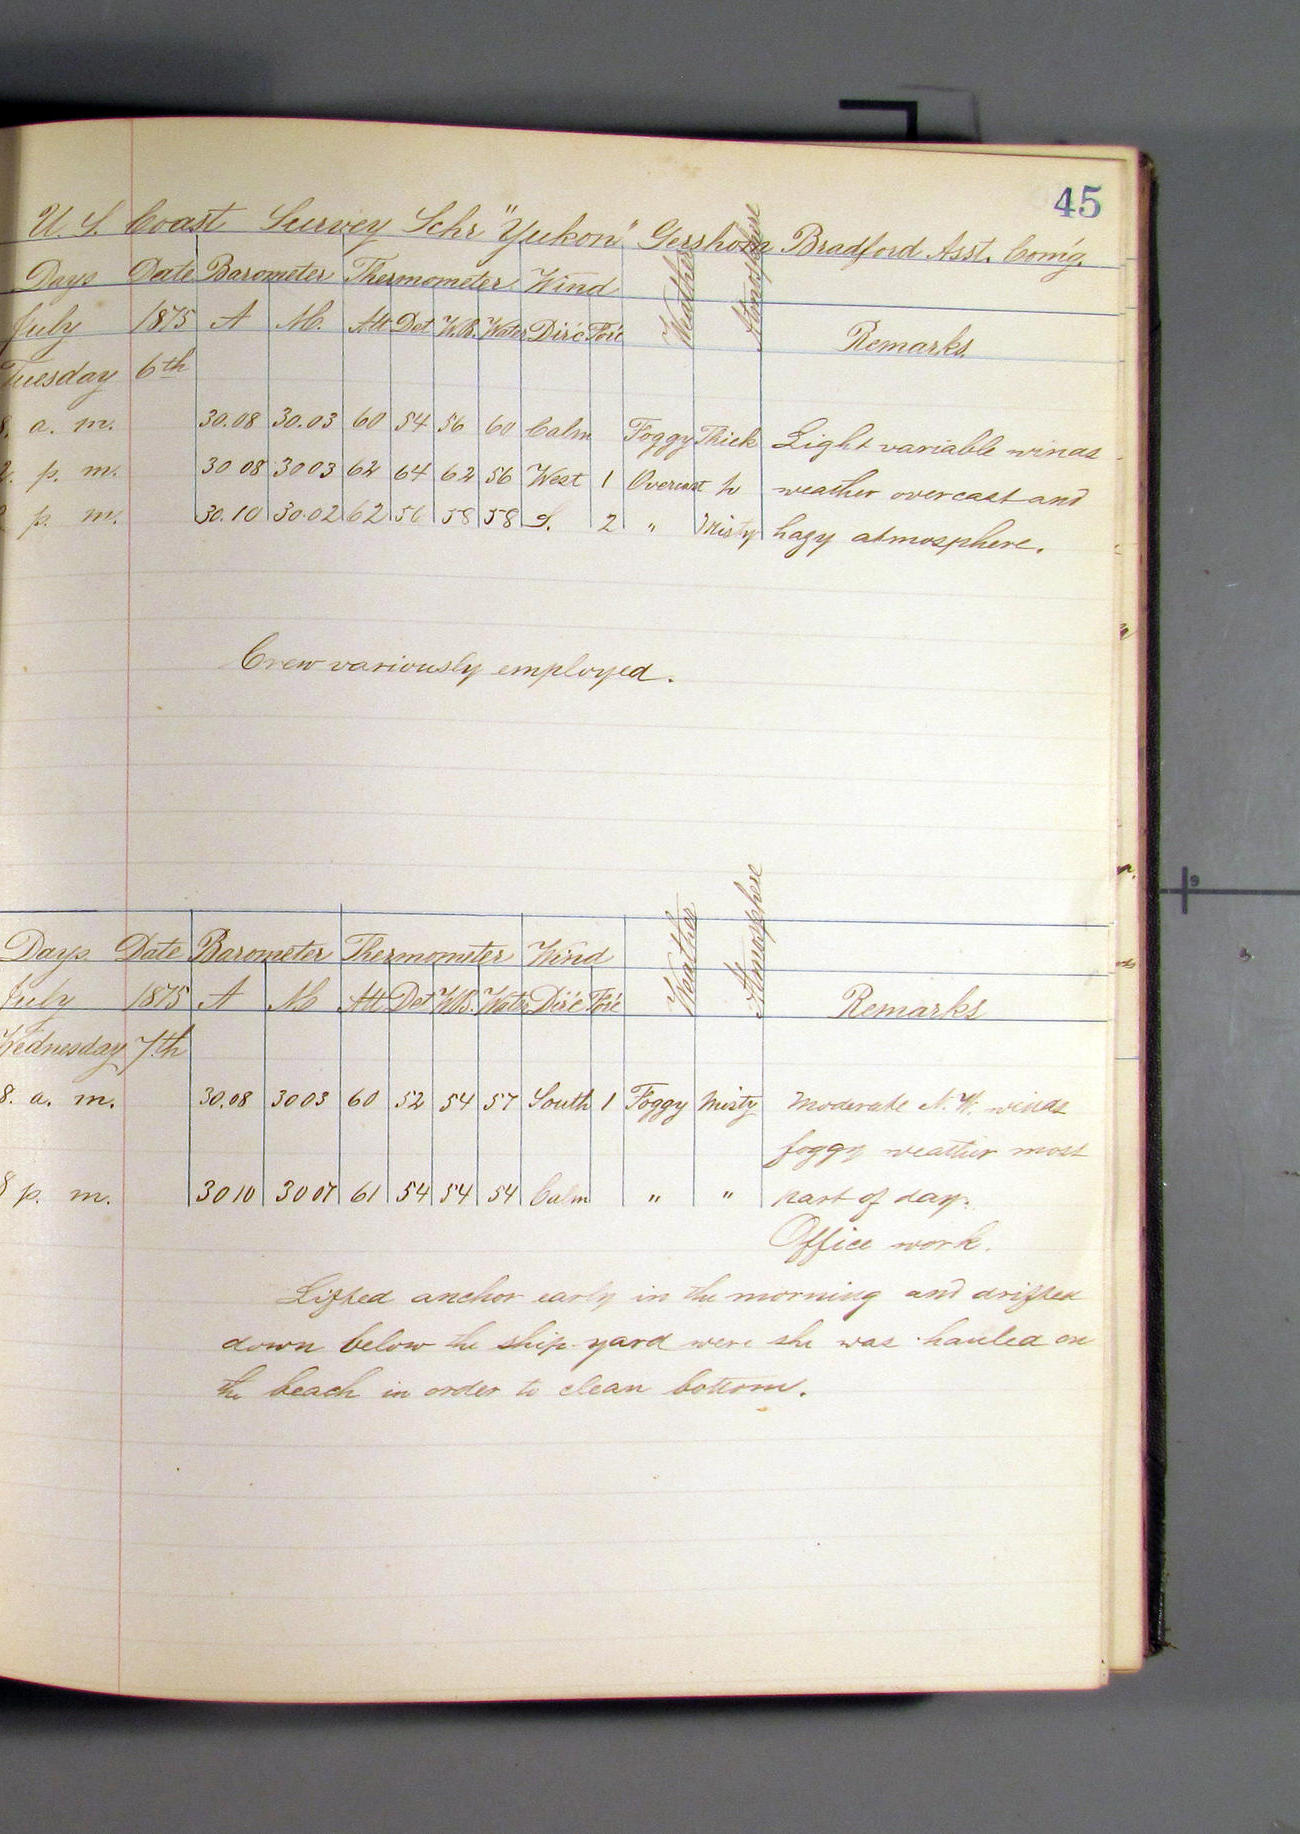 45
U. S. Coast Survey Schr "Yukon" Gershom Bradford Asst. Com'g.
Days Date Barometer Thermometer Wind Weather Atmosphere
July 1875 A M. Att Det W.B. Water Dir'c For'c Remarks
Tuesday 6th
8. a. m. 30.08 30.03 60 54 56 60 Calm Foggy Thick Light variable winds
p. m. 30 08 30 03 62 64 62 56 West 1 Overcast weather overcast and
p. m. 30.10 30.02 62 56 58 58 S. 2 " Misty hazy atmosphere.
Crew variously employed.
Days Date Barometer Thermometer Wind Weather Atmosphere
July 1875 A M Att Det W.B. Water Dir'c For'c Remarks
Wednesday 7th
8. a. m. 30.08 30 03 60 52 54 57 South 1 Foggy Misty Moderate N. W. winds
foggy weather most
8 p. m. 30 10 30 07 61 54 54 54 Calm " " part of day.
Office work.
Lifted anchor early in the morning and drifted
down below the ship-yard were she was hauled on
the beach in order to clean bottom.